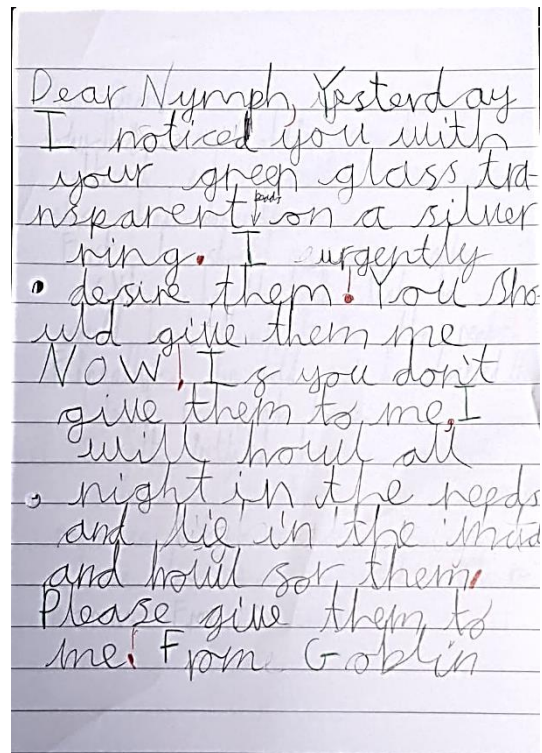 Dear Nymph, Yesterday
I noticed you with
your green glass tra-
nsparent beads on a silver
ring. I urgently
desire them! You sho-
uld give them me
NOW! If you don't
give them to me, I
will howl all
night in the reeds
and lie in the mud
and howl for them.
Please give them to
me! From Goblin